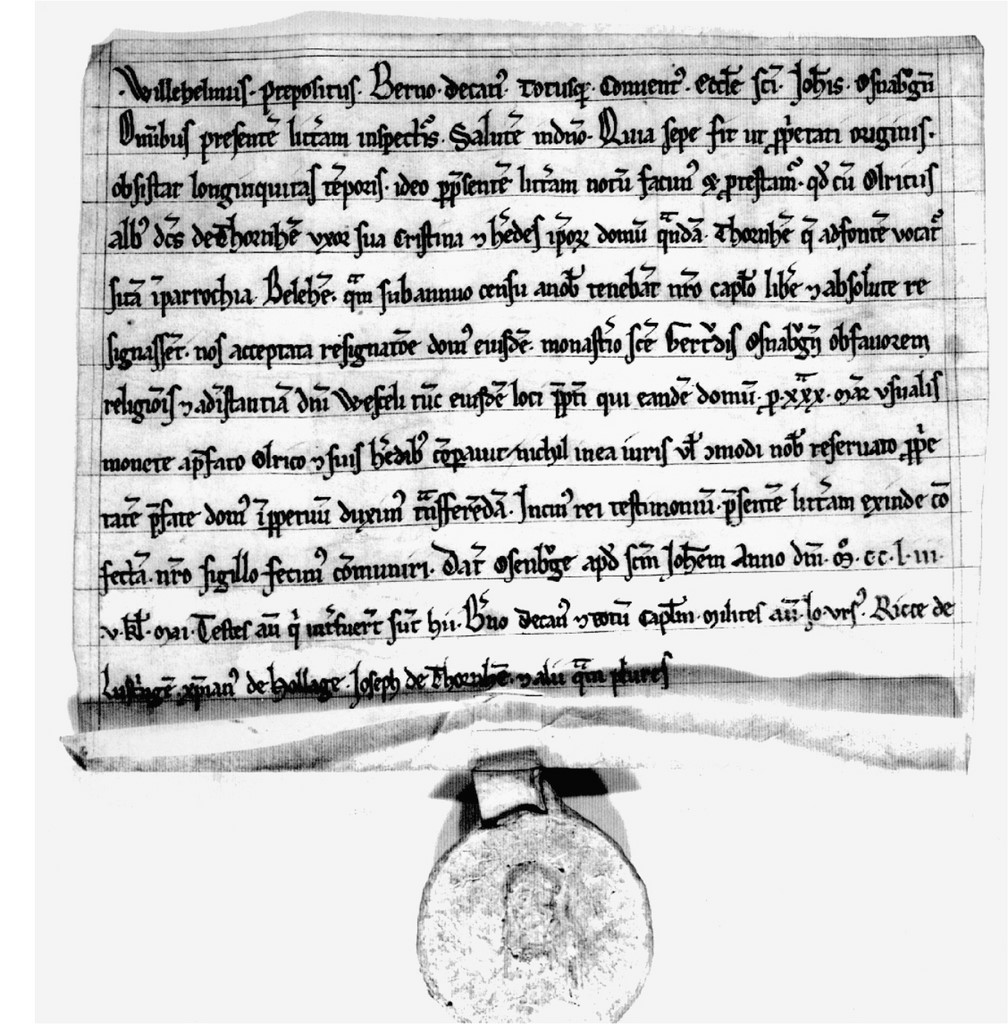 Willehelmus · prepositus · Berno · decan᾽ · totusq; · Conuent᾽ · eccl̄e sc̄i · Joh̄is · Osnabᵍgn̄
Om̄ibus presentē litt̄am inspectis᾽ · Salutē indn̄o · Quia sepe fit ut ꝓp̄etati originis ·
obsistat longinquitas tēporis · ideo ꝑp̄sentē litt̄am notū facim᾽ ⁊ protestam᾽ · qd̄ cū Olricus
alb᾽ dc̄s de Thornhē uxor sua Cristina ⁊ h̄edes ip̄oꝝ domū qᵃndā · Thornhē q̄ adfontē vocat᾽
sitā īparrochia Belehē · qᵃm sub annuo censu anob᾽ tenebāt nr̄o capl̄o lib̄e ⁊ absolute re
signassēt · nos acceptata resignatōe dom᾽ eiusdē · monast̄io sc̄e Gert̄dis Osnabᵍgn̄ obfauorem
religiōis ⁊ adīstantiā dn̄i Wesceli tūc eiusdē loci p̄p̄ti qui eandē domū · p · xxx · mar̄ usualis
monete ap̄fato Olrico ⁊ suis h̄edib᾽ cōparauit nichil inea iuris ul̄ ꝯmodi nob᾽ reseruato ꝓp̄e
tatē p̄fate dom᾽ īp̄petuū duxim᾽ tᵃnsferēdā · Incui᾽ rei testimoniū · p̄sentē litt̄am exinde cō
fectā · nr̄o sigillo fecim᾽ cōmuniri · Dat̄ Osenbᵍge apd̄ sc̄m Johēm Anno dn̄i · M̊ · cc · l · iii ·
· v · kl̄ · mai · Testes aū q̄ int̄fuer̄t sūt hii · B̄no decan᾽ ⁊ totū capl̄m · milites aū · Jo · urs᾽ · Ricce de
xp̄ian᾽ de Hollage · Joseph de Thornhē · ⁊ alii qᵃm pl̄ures